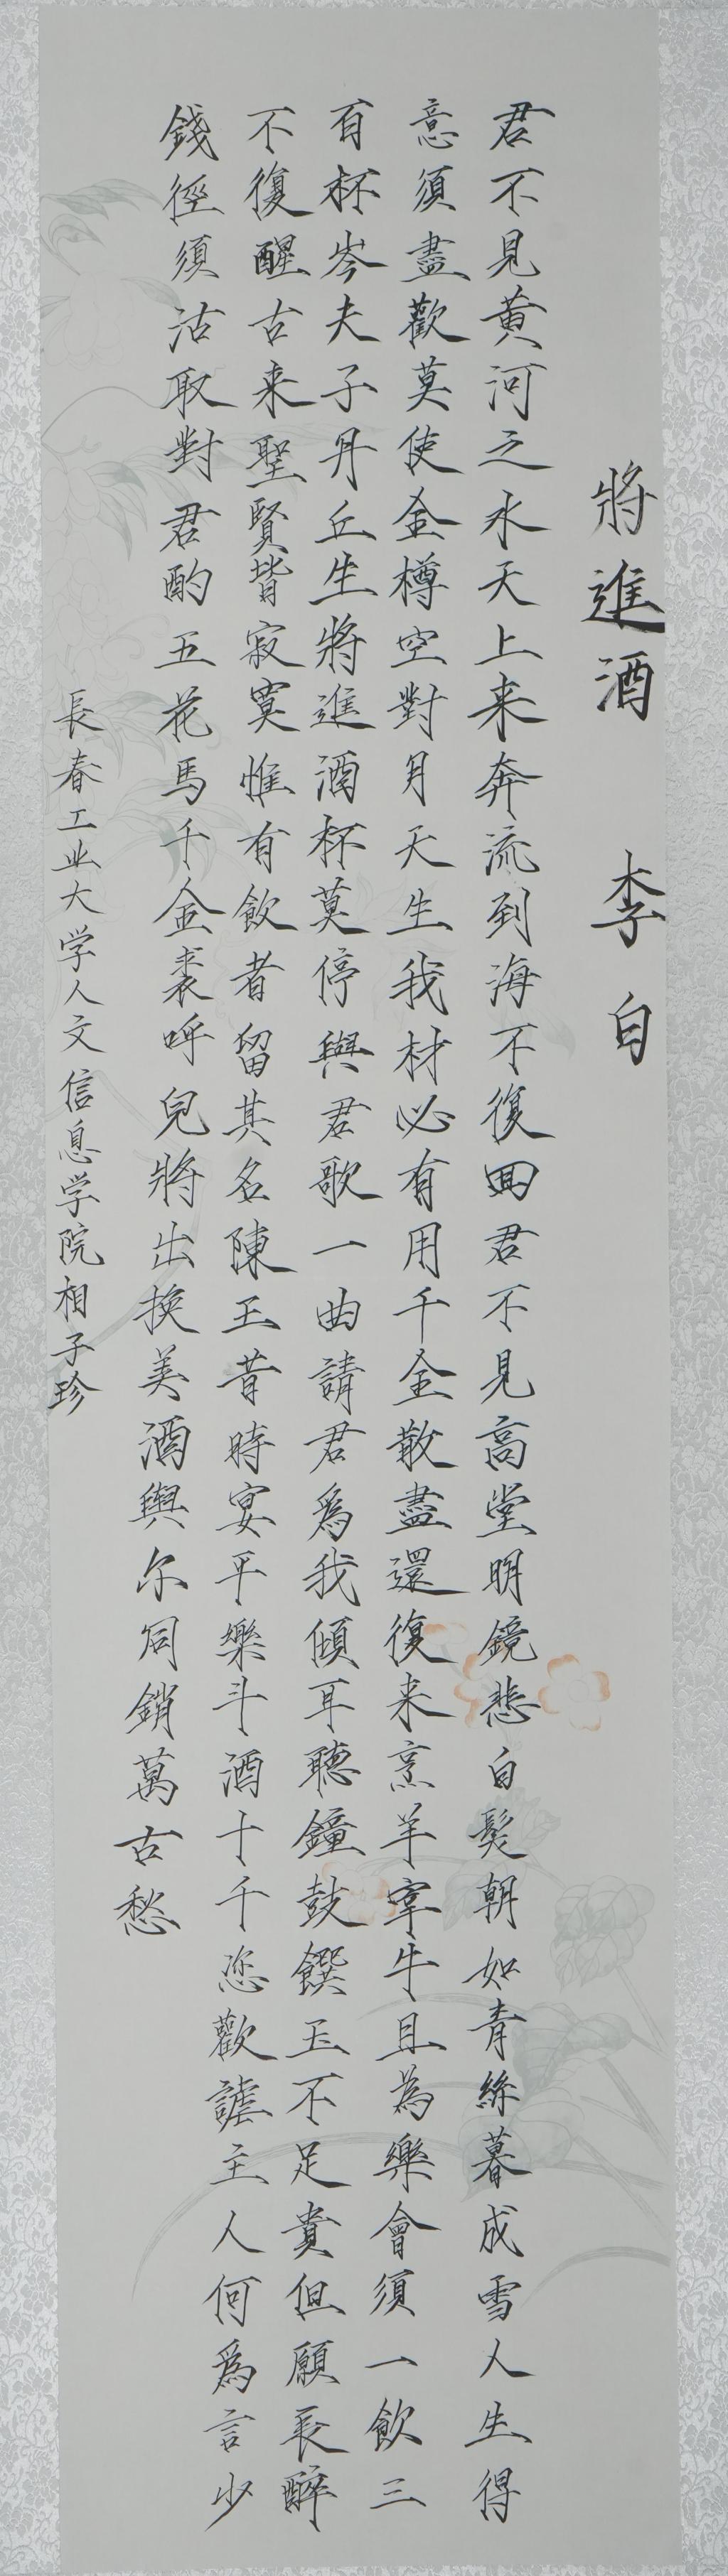 將進酒 李白
君不見黄河之水天上来奔流到海不復回君不見高堂明鏡悲白髮朝如青絲暮成雪人生得
意須盡歡莫使金樽空對月天生我材必有用千金散盡還復来烹羊宰牛且為樂會須一飲三
百杯岑夫子丹丘生將進酒杯莫停與君歌一曲請君爲我傾耳聽鐘鼓饌玉不足貴但願長醉
不復醒古来聖賢皆寂寞惟有飲者留其名陳王昔時宴平樂斗酒十千恣歡謔主人何爲言少
錢徑須沽取對君酌五花馬千金裘呼兒將出換美酒與尔同銷萬古愁
長春工业大学人文信息学院相子珍